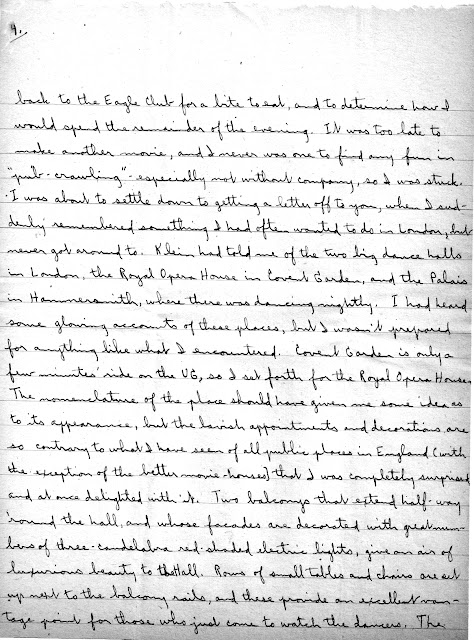 4.
back to the Eagle Club for a bite to eat, and to determine how I
would spend the remainder of the evening. It was too late to
make another movie, and I never was one to find any fun in
"pub-crawling" - especially not without company, so I was stuck.
I was about to settle down to getting a letter off to you, when I sud-
denly remembered something I had often wanted to do in London, but
never got around to. Klein had told me of the two big dance halls
in London, the Royal Opera House in Covent Garden, and the Palais
in Hammersmith, where there was dancing nightly. I had heard
some glowing accounts of these places, but I wasn't prepared
for anything like what I encountered. Covent Garden is only a
few minutes' ride on the UG, so I set forth for the Royal Opera House
The nomenclature of the place should have given me some idea as
to its appearance, but the lavish appointments and decorations are
so contrary to what I have seen of all public places in England (with
the exception of the better movie-houses) that I was completely surprised
and at once delighted with it. Two balconys that extend half-way
'round the hall, and whose facades are decorated with great num-
bers of three-candelabra red-shaded electric lights, give an air of
luxurious beauty to the Hall. Rows of small tables and chairs are set
up next to the balcony rails, and these provide an excellent van-
tage point for those who just come to watch the dancers. The